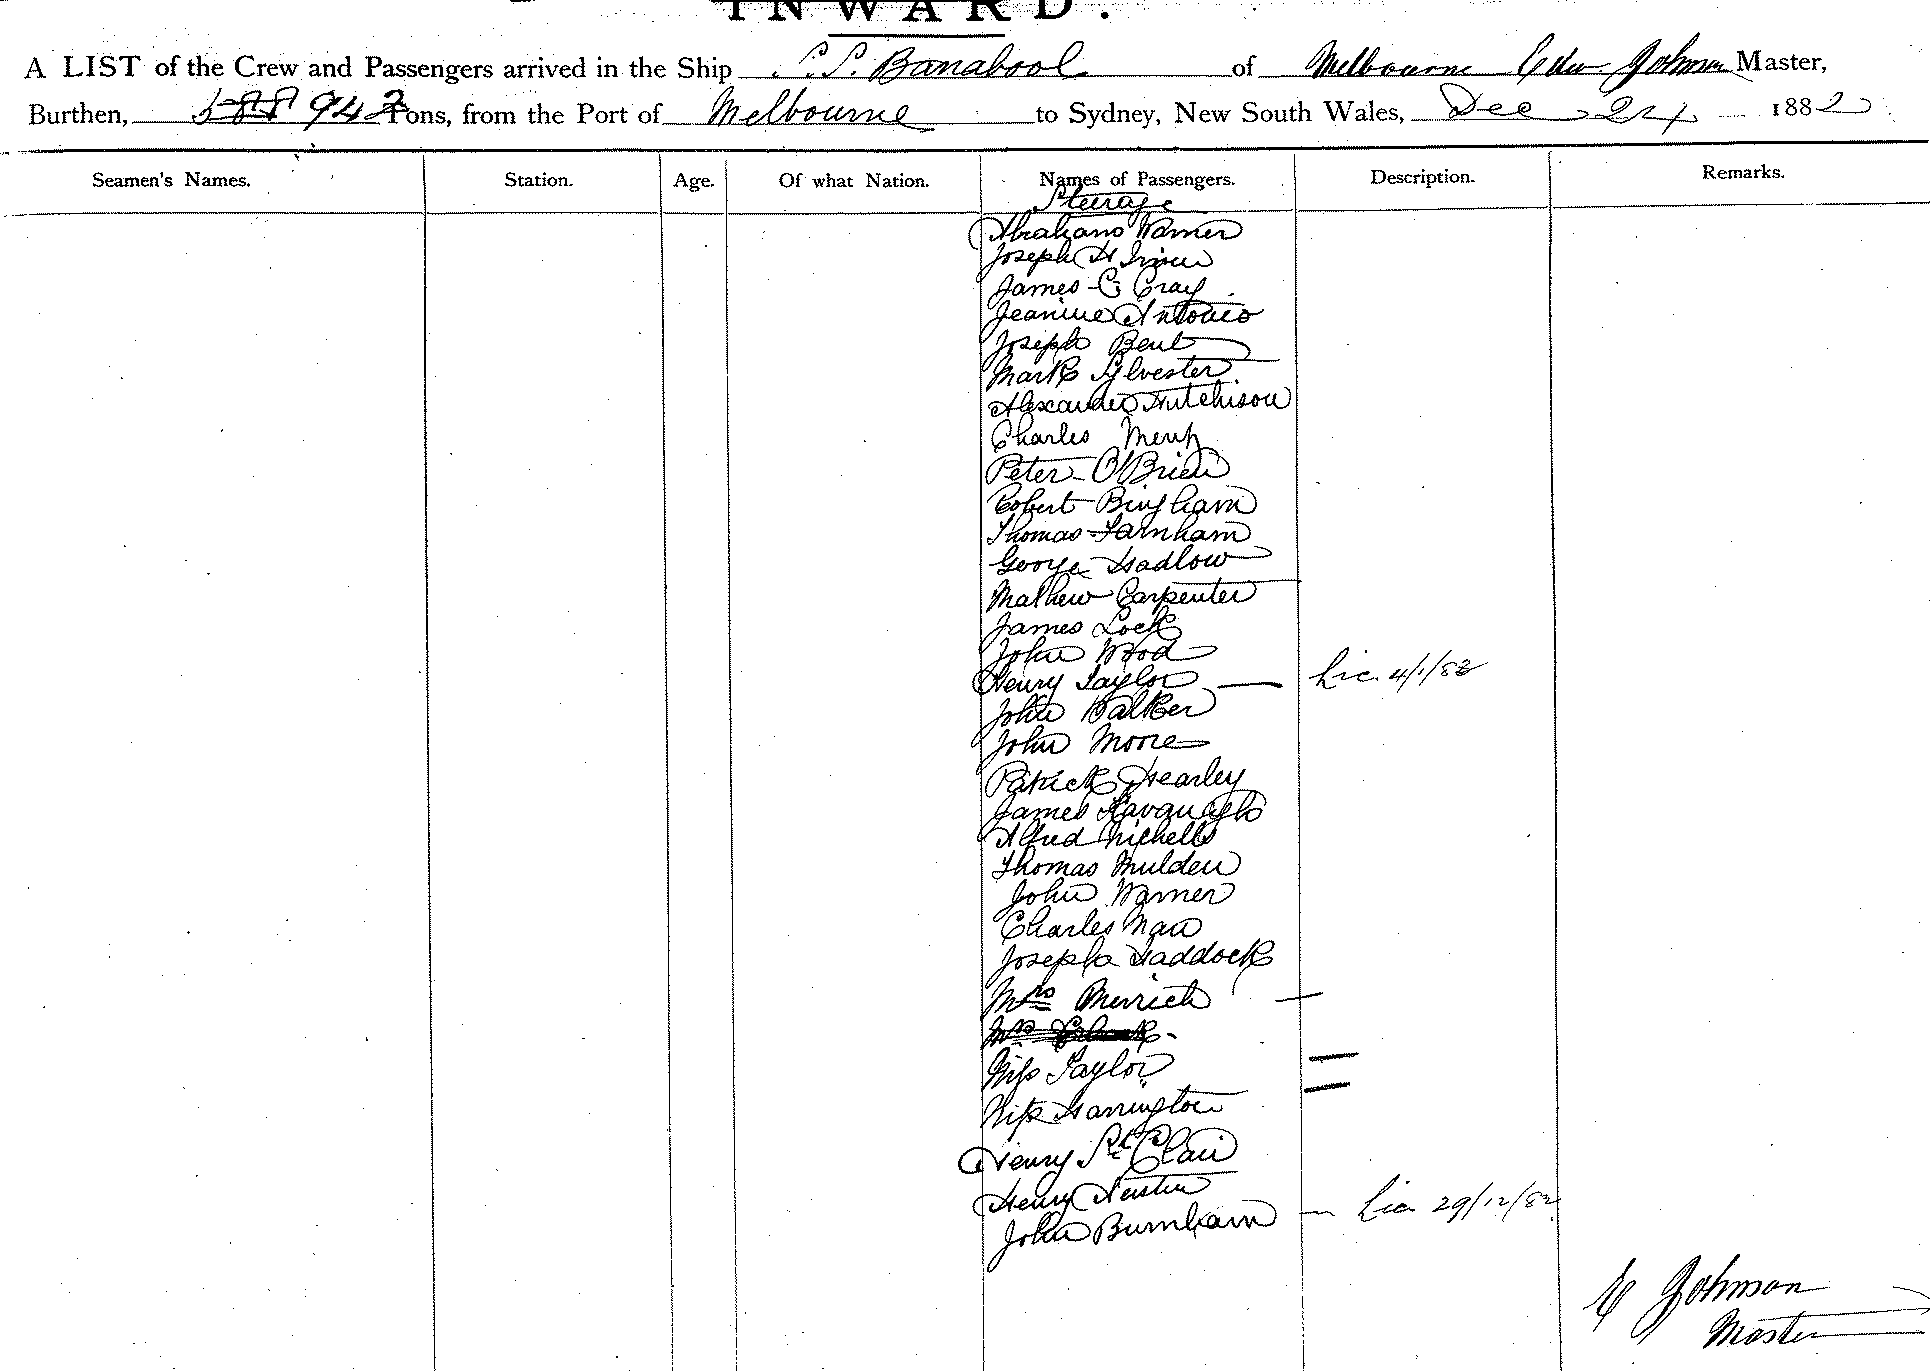 INWARD.
A LIST of the Crew and Passengers arrived in the Ship S.S. Banabool of Melbourne Edw Johnson Master,
Burthen, 588 942 Tons, from the Port of Melbourne to Sydney, New South Wales, Dec 24 1882
Seamen's Names. Station. Age. Of what Nation. Names of Passengers. Description. Remarks.
Steerage
Abrahams Warner
Joseph H
James C Cray
Jeanine Antonio
Joseph Bent
Mark Sylvester
Alexander Hutchison
Charles
Peter O'Brien
Robert Bingham
Thomas Farnham
George Hadlow
Mathew Carpenter
James Lock
John Wood
Henry Taylor — Lic. 4/1/83
John Walker
John Moore
Patrick Hearley
James Kavanagh
Alfred Nichells
Thomas Mulden
John Warner
Charles Nau
Joseph Haddock
Mrs —
Mrs
Miss Taylor —
Miss Harrington —
Henry St Clair
Henry
John Burnham — Lic 29/12/82
E Johnson
Master